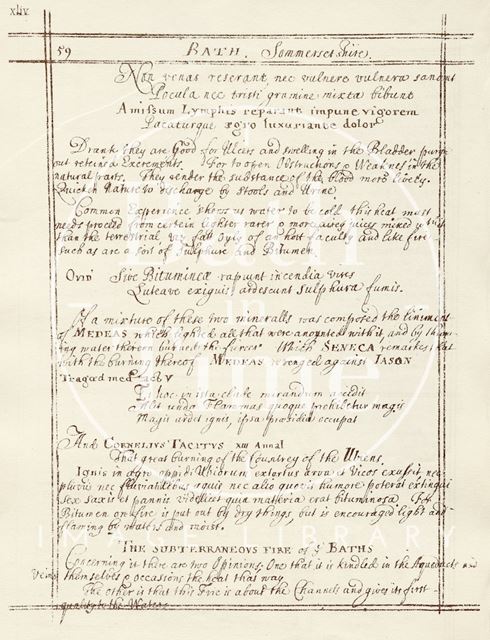 xliv
59 BATH. Sommersetshire,
Non venas reserant nec vulnere vulnera sanant
Pocula nec tristi gramine mixta bibunt
Amissum Lymphis reparant impune vigorem
Pacaturque ægro luxuriante dolor
Drank they are Good for Ulcers and swelling in the Bladder purge
out retein'd Excrements. For to open Obstructions & Weaknes in the
natural parts. They render the substance of the blood more lively.
Quicken Nature to discharge by Stools and Urine
Common Experience shows us water to be cold this heat must
needs proceed from certein lighter rarer & more airey juices mixed with it
than the terrestrial, viz fatt Oyly of a hott faculty and like fire
such as are a sort of Sulphur and Bitumen
Ovid Sive Bitumineæ rapiunt incendia vires
Luteave exiguis ardescunt sulphura fumis.
Of a mixture of these two mineralls was composed the liniment
of MEDEAS which lighted all that were anointed with it, and by
ing water thereon burnt the fiercer Which SENECA remarketh
with the burning thereof MEDEAS revenged against IASON
Tragœd med act V
Et hoc in ista clade mirandum accidit
Alit unda Flammas quoque prohibetur magis
Magis ardet ignis, ipsa præsidia occupat
And CORNELIUS TACITUS XIII Annal
That great burning of the Countrey of the Ubiens,
Ignis in agro oppidi Ubiorum exortus arva et Vicos exussit, nec
pluviis nec fluviatilibus aquis nec alio quovis humore poterat extingui
sex saxis et pannis videlicet quia materia erat bituminosa For
Bitumen on fire is put out by dry things, but is encouraged light and
flaming by waters and moist.
THE SUBTERRANEOUS FIRE of ye BATHS
Concerning it there are two Opinions; One that it is kindled in the Aqueducts
themselves & occasions the heat that way
The other is that this Fire is about the Channels and gives its first
quality to the Waters
Bath in Time
IMAGE LIBRARY